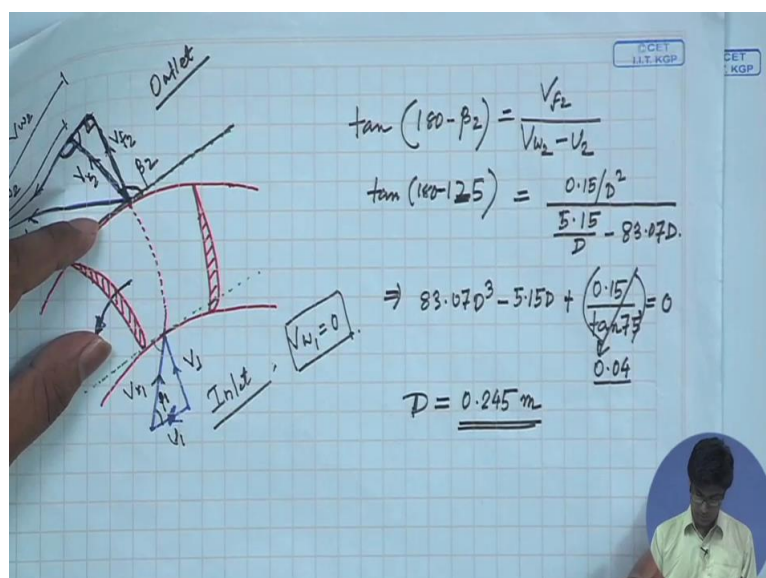 CCET
I.I.T. KGP
CET
KGP
Outlet
Vw2
Vf2
Vr2
β2
tan (180-β2) = Vf2 / (Vw2 - U2)
tan (180-125) = (0.15/D²) / (5.15/D - 83.07D.)
⇒ 83.07D³ - 5.15D + (0.15/tan75) = 0
0.04
D = 0.245 m
Inlet, Vw1 = 0.
Vr1
V1
β1
U1